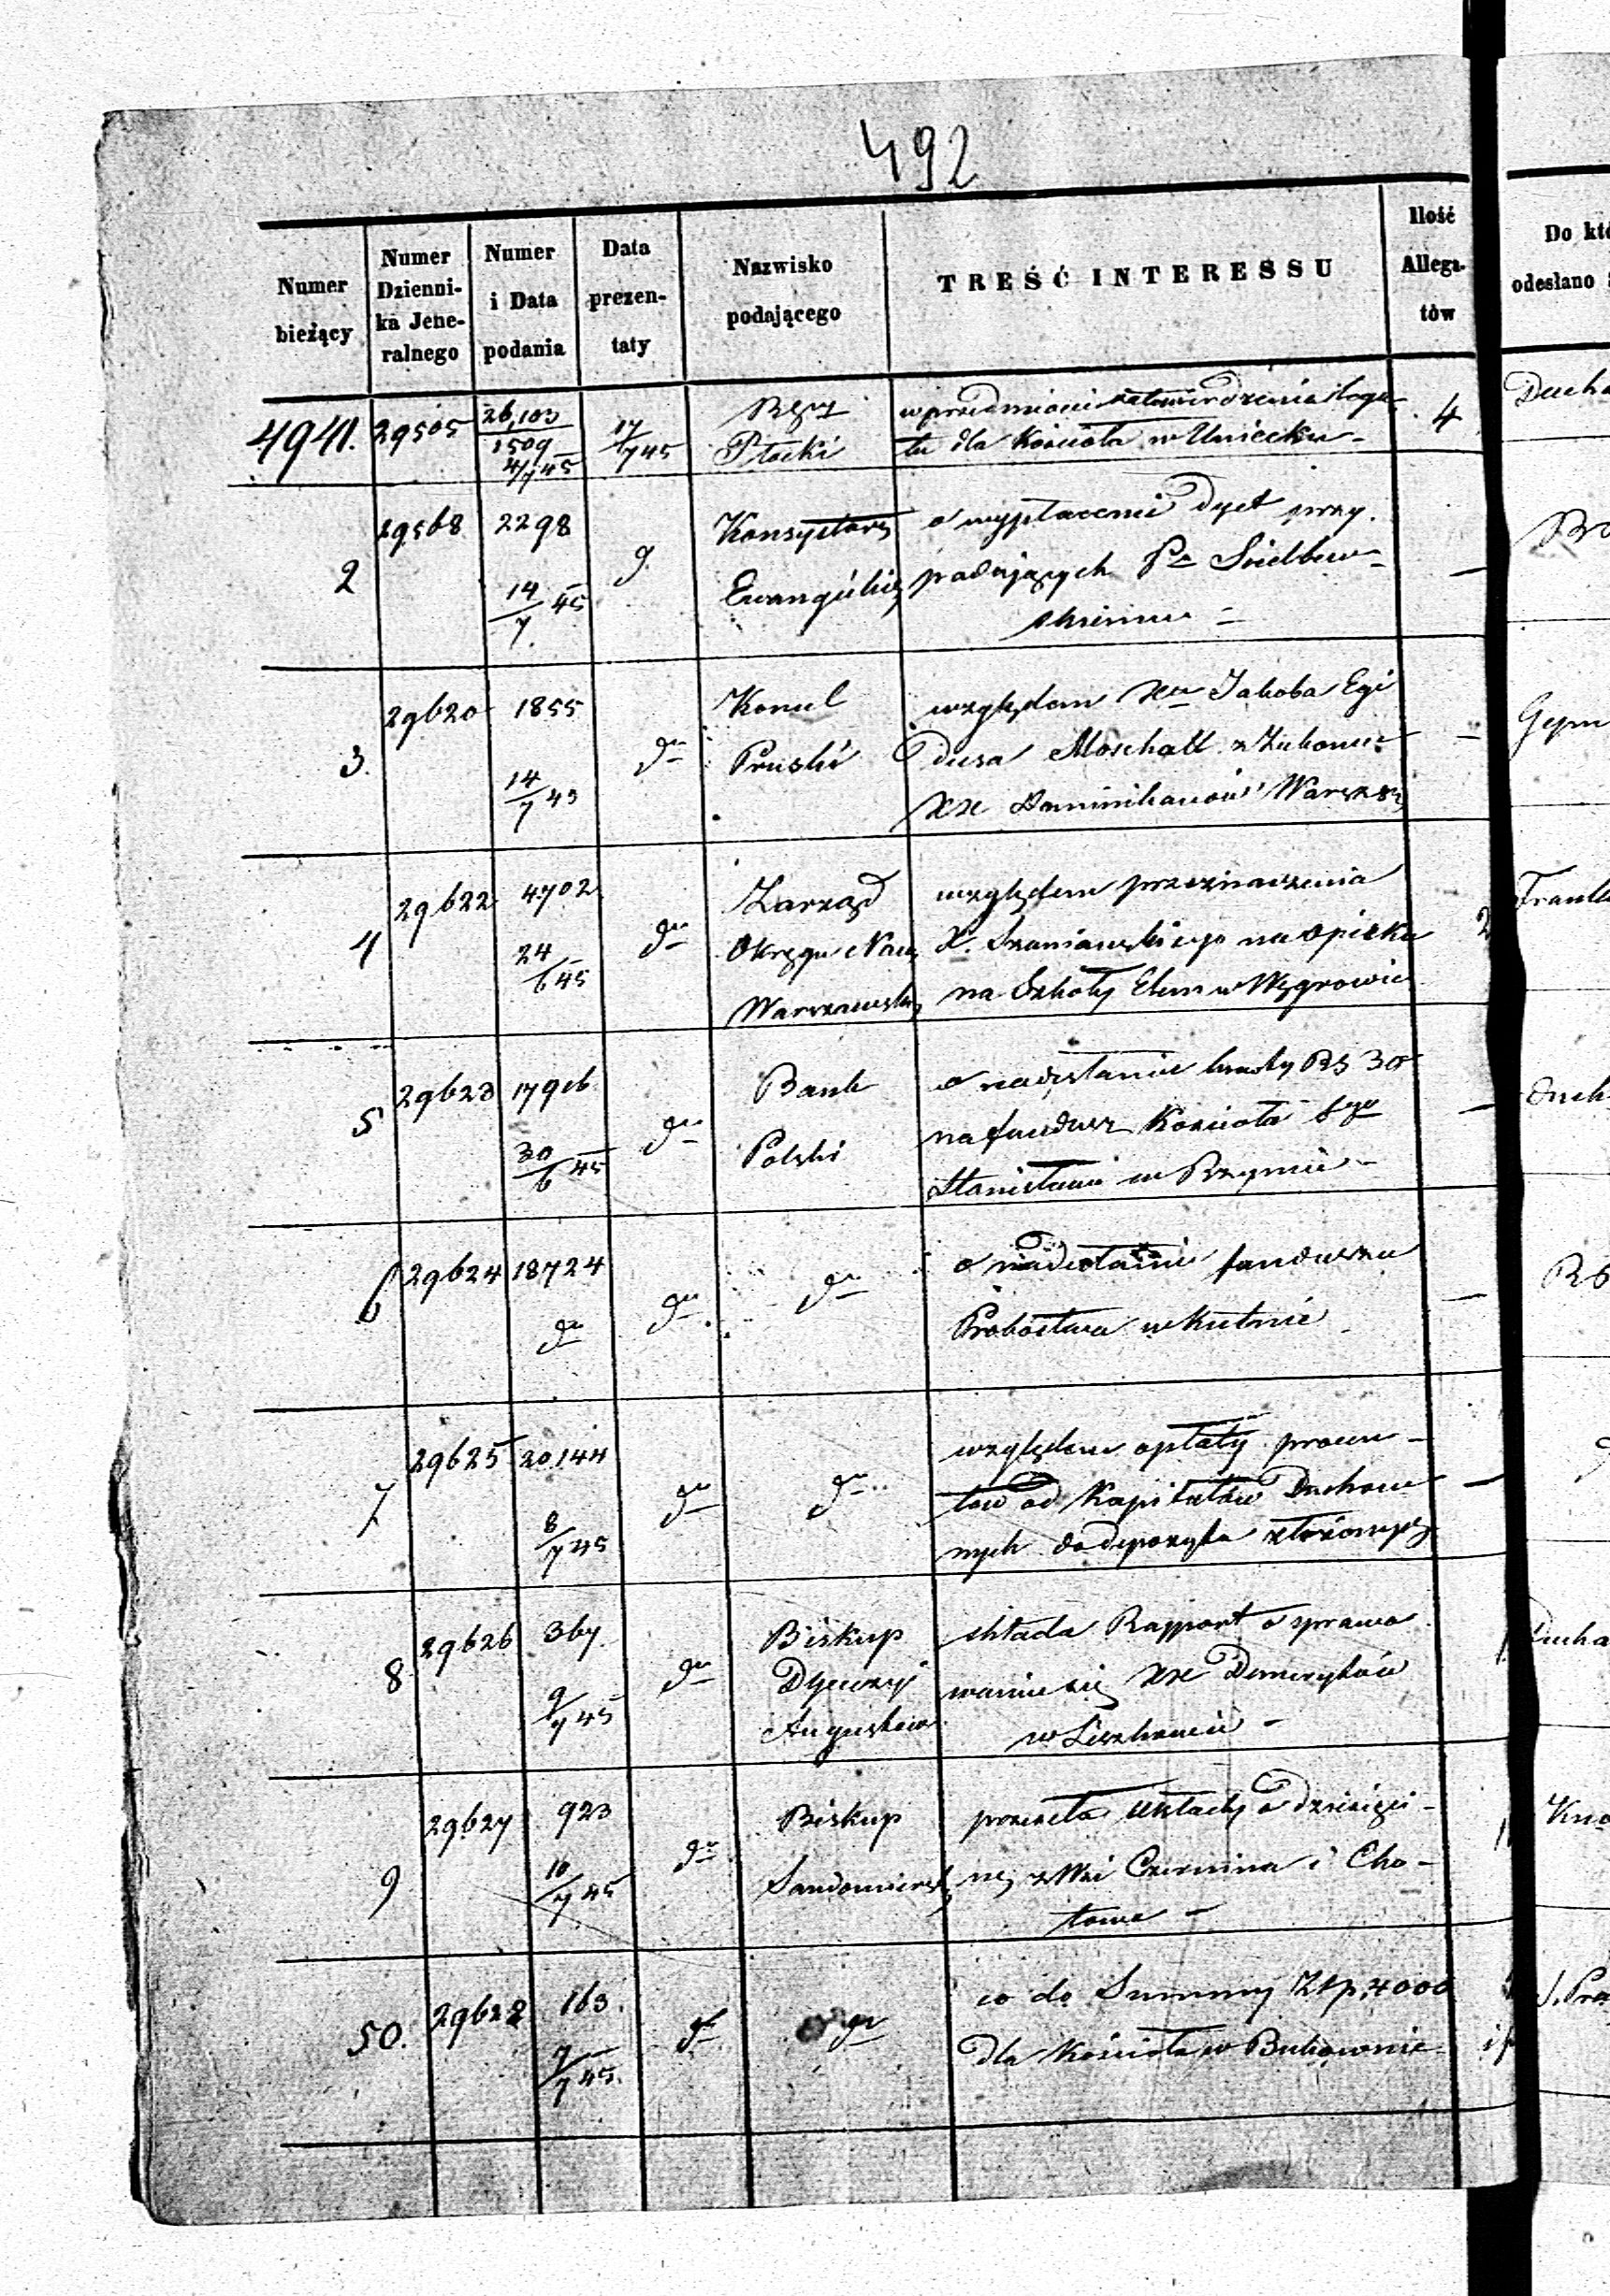 492
Numer bieżący
Numer Dzienni- ka Jene- ralnego
Numer i Data podania
Data prezen- taty
Nazwisko podającego
TREŚĆ INTERESSU
Ilość Allega- tów
Do któ
odesłano
4941. 29505 26,103 1509 4/7 45 17/7 45
Płocki
w przedmiocie zatwierdzenia lega-
tu dla Kościoła w Uniecku -
4
Ducho
2 29568 2298 14/7 45 d.
Konsystorz
Ewangielic
o wypłacenie dyet przy
padających Pu Siedlew-
skiemu -
3. 29620 1855 14/7 45 do
Konsul
Pruski
względem Xa Jakoba Egi
diusa Moschall z Zakonu
XX Dominikanów Warszs
4 29622 4702 24/6 45 do
Zarząd
Okręgu Nau
Warszawsk
względem przeznaczenia
X. Szaniawskiego na opieku
na Szkoły Elem w Węgrowie
2
5 29623 17906 30/6 45 do
Bank
Polski
o nadesłanie kwoty RS 30
na fundusz Kościoła Sgo
Stanisława w Rzymie -
6 29624 18724 do do do
o nadesłanie funduszu
Probostwa w Kutnie
7 29625 20,144 8/7 45 do do
względem opłaty procen-
tów od Kapitałów Duchow
nych do depozytu złożonych
8 29626 367 9/7 45 do
Biskup
Dyecezyi
Augustow
składa Rapport o sprawo
waniu się XX Demerytów
w Liszkowie -
9 29627 923 10/7 45 do
Biskup
Sandomiersk
przesyła układy o dziesięci-
nę z Wsi Czermina i Cho-
towa -
50. 29628 163 7/7 45 do do
co do Summy Złp. 4000
dla Kościoła w Bukownie